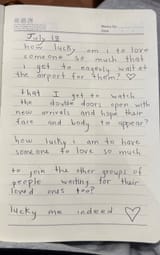 July 18
how lucky am i to love
someone so much that
i get to eagerly wait at
the airport for them? ♡
that I get to watch
the double doors open with
new arrivals and hope their
face and body to appear?
how lucky i am to have
someone to love so much
to join the other groups of
people waiting for their
loved ones too?
lucky me indeed ♡